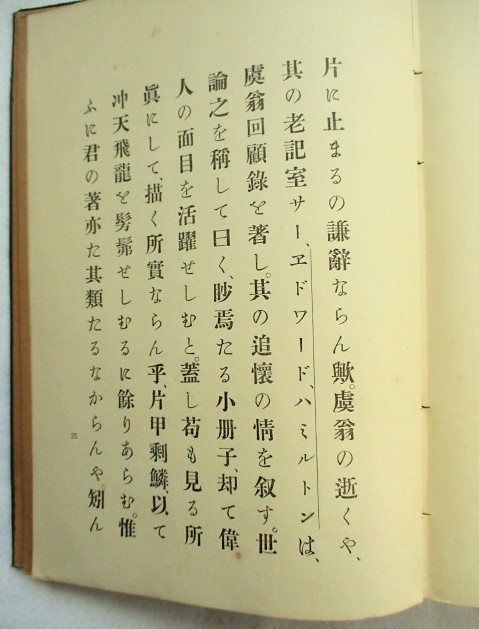 片に止まるの謙辭ならん歟。虞翁の逝くや、
其の老記室サー、ヱドワード、ハミルトンは、
虞翁回顧錄を著し。其の追懷の情を叙す。世
論之を稱して曰く、眇焉たる小册子、却て偉
人の面目を活躍せしむと。蓋し苟も見る所
眞にして、描く所實ならん乎、片甲剩鱗、以て
冲天飛龍を髣髴せしむるに餘りあらむ。惟
ふに君の著亦た其類たるなからんや。矧ん